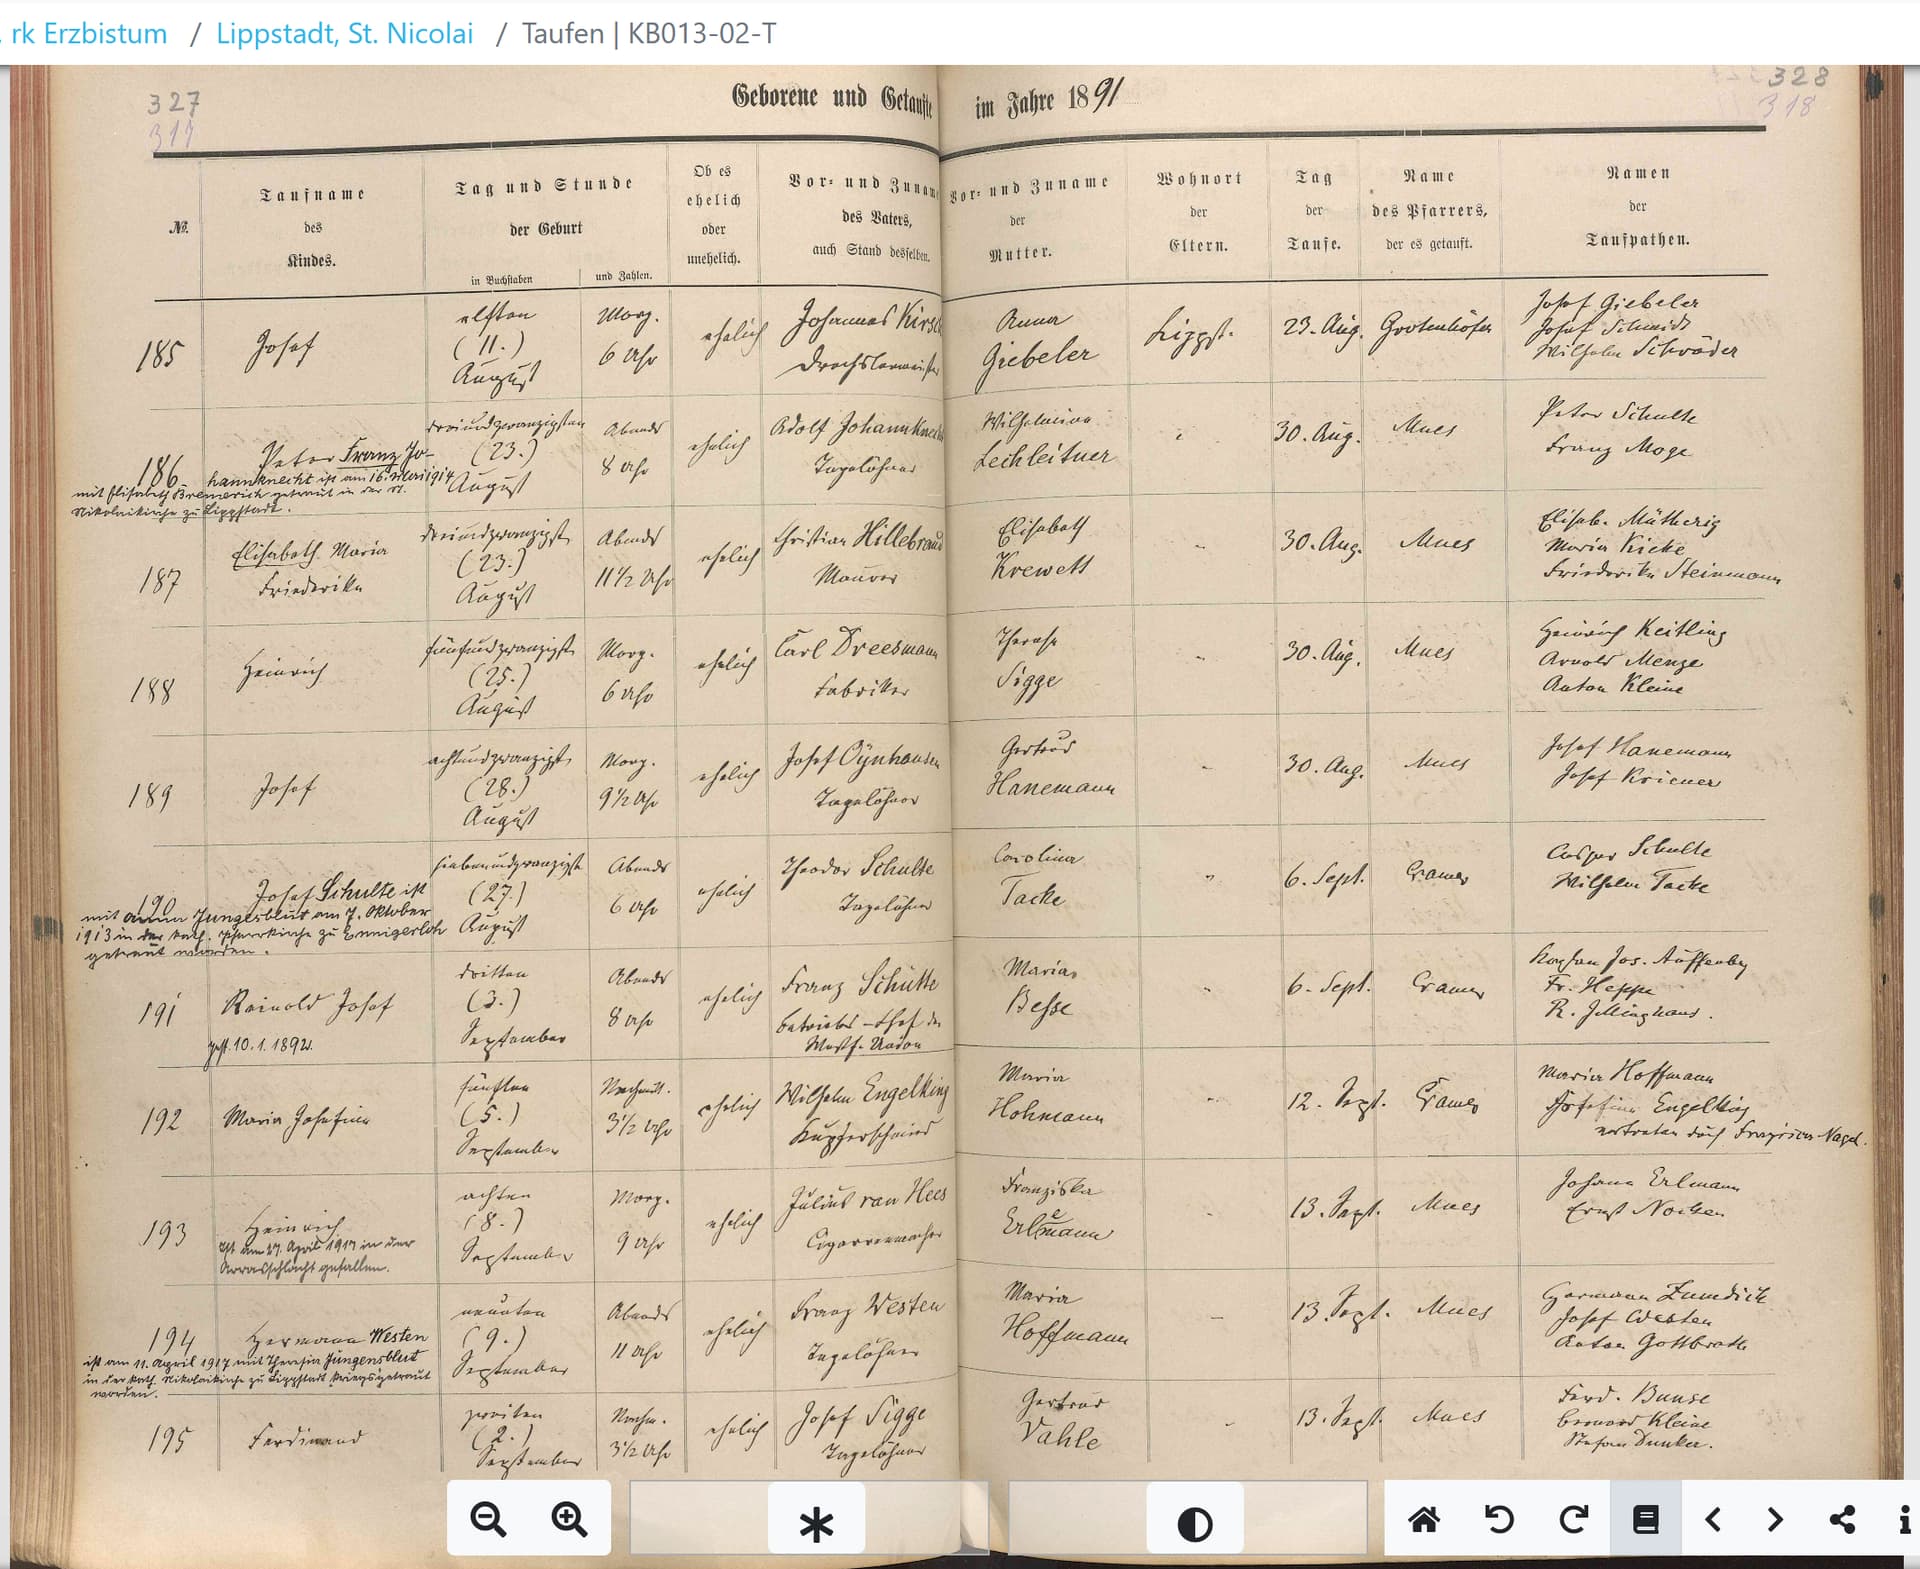 rk Erzbistum / Lippstadt, St. Nicolai / Taufen | KB013-02-T
327
317
328
318
Geborene und Getaufte im Jahre 1891
No.
Taufname
des
Kindes.
Tag und Stunde
der Geburt
in Buchstaben
und Zahlen.
Ob es
ehelich
oder
unehelich.
Vor- und Zuname
des Vaters,
auch Stand desselben.
Vor- und Zuname
der
Mutter.
Wohnort
der
Eltern.
Tag
der
Taufe.
Name
des Pfarrers,
der es getauft.
Namen
der
Taufpathen.
185
Josef
elften
(11.)
August
Morg.
6 Uhr
ehelich
Johannes Kirsch
Drechslermeister
Anna
Giebeler
Lippst.
23. Aug.
Grotenhöfer
Josef Giebeler
Josef Schmidt
Wilhelm Schröder
186
Peter Franz Jo-
hannknecht ist am 16. Mai 1914
mit Elisabeth Bremerich getraut in der St.
Nikolaikirche zu Lippstadt.
dreiundzwanzigsten
(23.)
August
Abends
8 Uhr
ehelich
Adolf Johannknecht
Tagelöhner
Wilhelmina
Lechleitner
30. Aug.
Mues
Peter Schulte
Franz Moge
187
Elisabeth Maria
Friederika
dreiundzwanzigst.
(23.)
August
Abends
11 1/2 Uhr
ehelich
Christian Hillebrand
Maurer
Elisabeth
Krewett
30. Aug.
Mues
Elisab. Mütherig
Maria Kicke
Friederika Steinmann
188
Heinrich
fünfundzwanzigst.
(25.)
August
Morg.
6 Uhr
ehelich
Carl Dreesmann
Fabriker
Therese
Sigge
30. Aug.
Mues
Heinrich Keitling
Arnold Menze
Anton Kleine
189
Josef
achtundzwanzigst.
(28.)
August
Morg.
9 1/2 Uhr
ehelich
Josef Oynhausen
Tagelöhner
Gertrud
Hanemann
30. Aug.
Mues
Josef Hanemann
Josef Kriener
190
Josef Schulte ist
mit Anna Jungesblut am 7. Oktober
1913 in der kath. Pfarrkirche zu Ennigerloh
getraut worden.
siebenundzwanzigst.
(27.)
August
Abends
6 Uhr
ehelich
Theodor Schulte
Tagelöhner
Carolina
Tacke
6. Sept.
Cramer
Caspar Schulte
Wilhelm Tacke
191
Reinold Josef
gest. 10. 1. 1892.
dritten
(3.)
September
Abends
8 Uhr
ehelich
Franz Schütte
Betriebs-Chef der
Westf. Union
Maria
Besse
6. Sept.
Cramer
Jos. Auffenberg
Fr. Heppe
R. Jellinghaus.
192
Maria Josefina
fünften
(5.)
September
Nachmitt.
3 1/2 Uhr
ehelich
Wilhelm Engelking
Kupferschmied
Maria
Hohmann
12. Sept.
Cramer
Maria Hoffmann
Josefina Engelking
vertreten durch Franziska Nagel.
193
Heinrich
Ist am 17. April 1917 in der
Arrasschlacht gefallen.
achten
(8.)
September
Morg.
9 Uhr
ehelich
Julius van Hees
Cigarrenmacher
Franziska
Erlemann
13. Sept.
Mues
Johann Erlmann
Ernst Nocken
194
Hermann Westen
ist am 11. April 1917 mit Theresia Jungensblut
in der kath. Nikolaikirche zu Lippstadt kriegsgetraut
worden.
neunten
(9.)
September
Abends
11 Uhr
ehelich
Franz Westen
Tagelöhner
Maria
Hoffmann
13. Sept.
Mues
Hermann Zumdick
Josef Westen
Anton Gottbrath
195
Ferdinand
zweiten
(2.)
September
Nachm.
3 1/2 Uhr
ehelich
Josef Sigge
Tagelöhner
Gertrud
Vahle
13. Sept.
Mues
Ferd. Bunse
Bernard Kleine
Stefan Dunker.